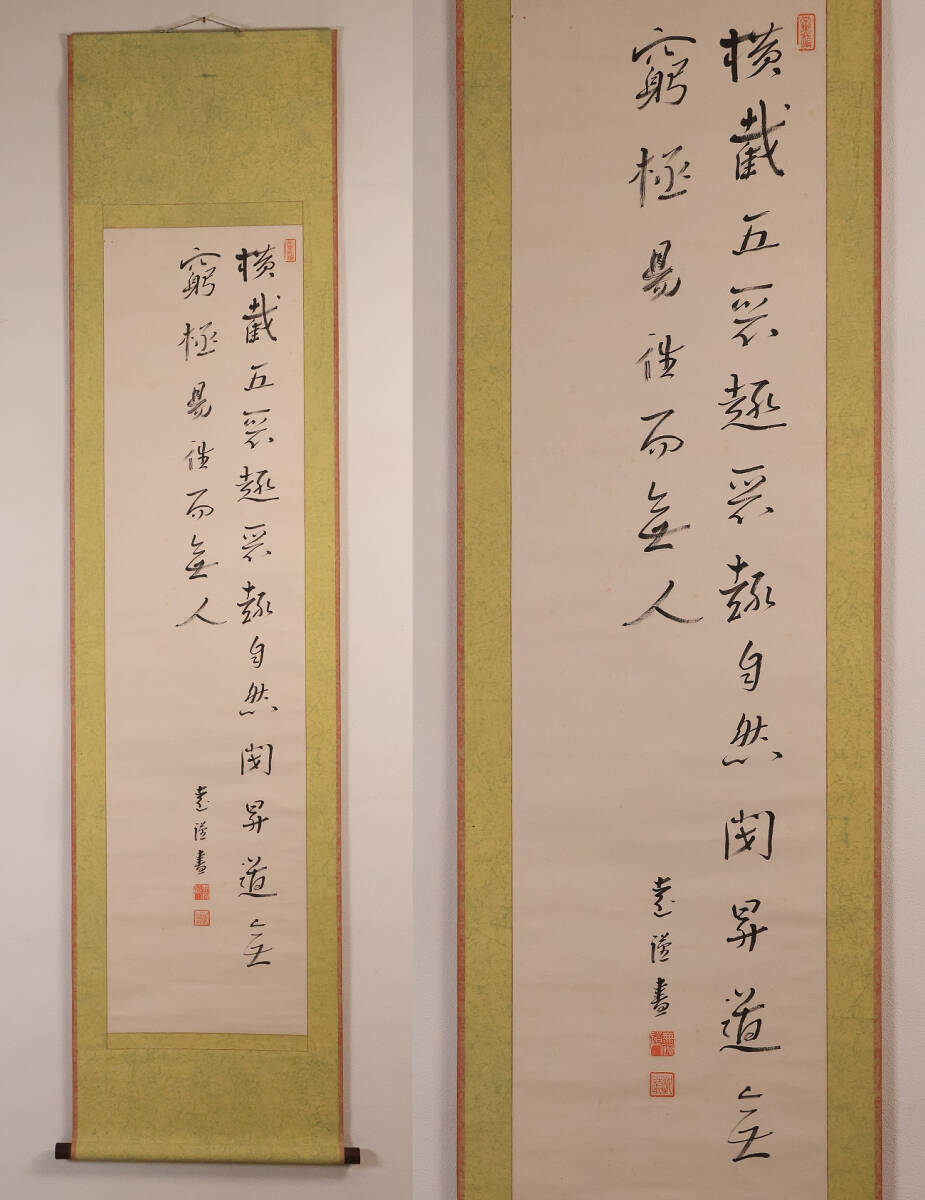 横截五悪趣悪趣自然閉昇道無
窮極易往而無人
書
横截五悪趣悪趣自然閉昇道無
窮極易往而無人
書